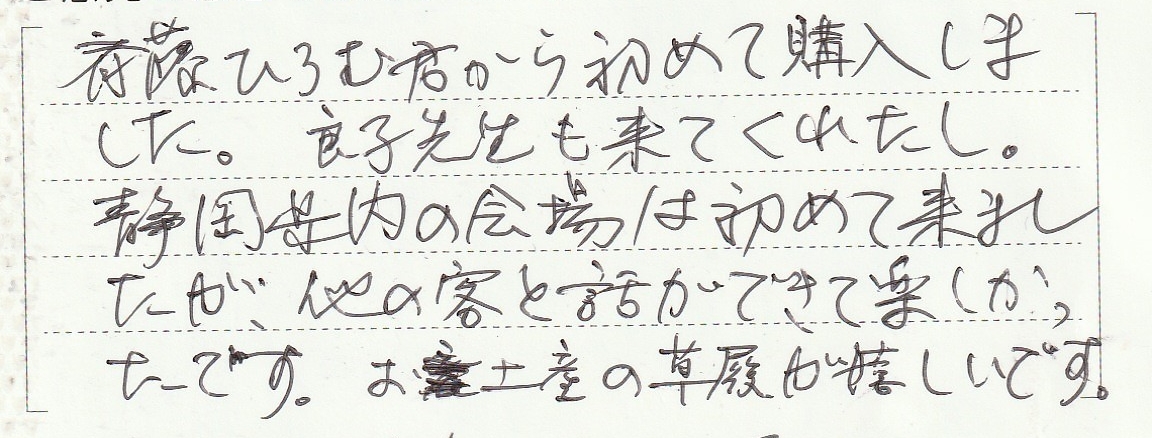 斉藤ひろむ君から初めて購入しま
した。良子先生も来てくれたし。
静岡県内の会場は初めて来まし
たが、他の客と話ができて楽しかっ
たです。お土産の草履が嬉しいです。